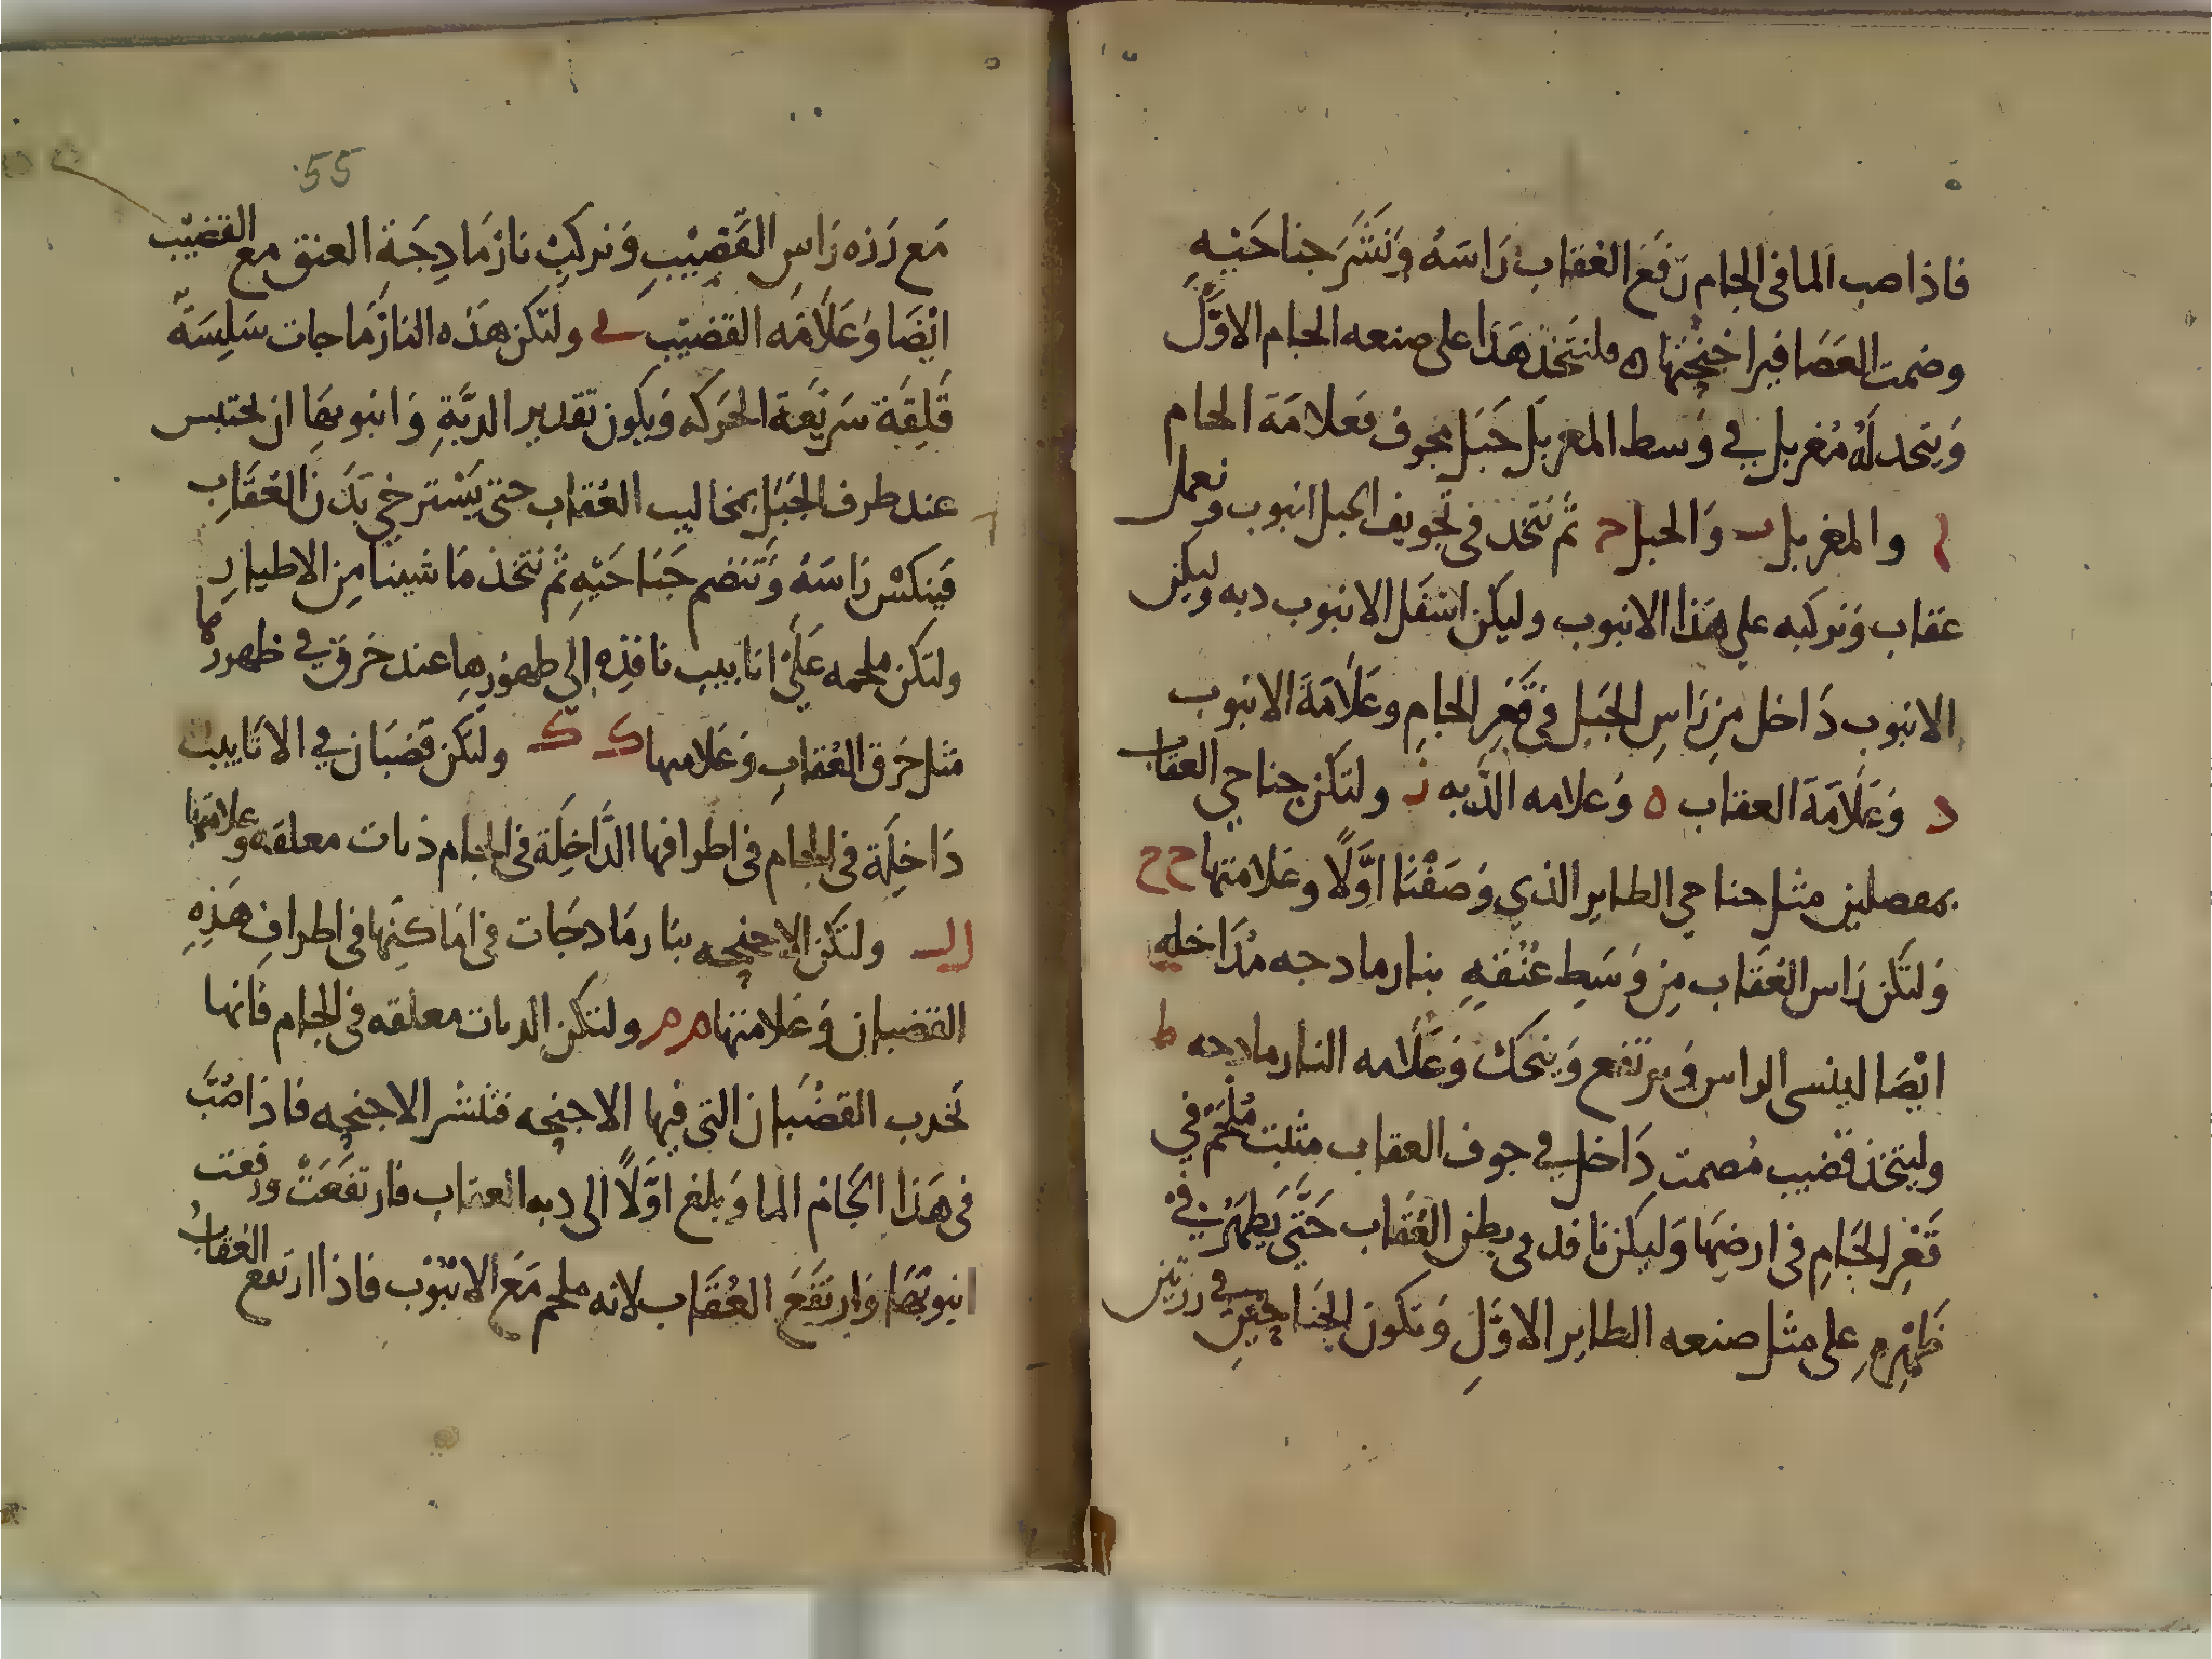 فاذا صب الما فى الجام رَفَعَ العُقاب رَاسَهُ وَنَشَرَ جناحَيْهِ
وضمت العَصَافير اجْنِحَتها ه ولنتخذ هَذا على صنعه الجام الاوَّل
وَيتخذ لَهُ مُغربل في وَسط المغربل جَبَل مجوف فعلامَة الجام
ا والمغربل ب وَالجبل ح ثم نتخذ فى تجويف الجبل انبوب ونعمل
عقاب وَنركبه علي هَذا الانبوب وليكن اسْفَل الانبوب دبه وليكن
الانبوب دَاخل مِن رَاسِ الجَبل في قَعْرِ الجامِ وعَلَامَةَ الانبوب
د وَعَلَامَة العقاب ه وَعلامه الدَّبه ز ولتكن جناحي العقاب
بمفصلين مثل جناحي الطاير الذي وَصَفْنَا اوَّلًا وعَلامتها ح ح
وَلتكن رَاس العُقَاب مِن وَسَطِ عُنْقِهِ بنارمادجه مُدَاخله
ايْضَا لينسى الراس وَيرتفع وَيتحك وَعَلَامه النارمادجه ط
وليتخذ قضيب مُصمت دَاخل في جوف العقاب مثبت مُلْحَم في
قَعْرِ الجَامِ فى ارضِهَا وَليكن نافد فى بطن العُقَاب حَتَّى يَظهَرُ في
ظَهْرِهِ على مثل صنعه الطاير الاوَّلِ وَتكون الجَناحَيْنِ في رزتين
55
مَع رَزه رَاسِ القَضِيْبِ وَنركبْ نازمَادِجَةِ العنق مع القضِيْب
ايْضَا وَعَلَامَه القضيْب ي ولتكن هَذه النازمَاجات سَلِسَةً
قَلِقَة سَريْعَة الحَركه وَيكون تقدير الدبَّةِ وَانبوبهَا ان يحتبس
عند طرف الجَبَل بمخاليب العُقاب حتى يَسْترخي بَدَن العُقَابِ
فَينكسْ رَاسَهُ وَتنضم جَنَاحَيْهِ ثم نتخذ مَا شينا مِن الاطيار
ولتكن ملحمه عَلَىْ انابيب نافِذه الى ظهُورهَا عند خَرق في ظهورها
مثل خَرق العُقابِ وَعَلامتها ك ك ولتكن قَضبَان في الانَابيب
دَاخِلَة فى الجام فى اطرافها الدَّاخِلَة فى الجام دبات معلقه وعلامتها
ل ل ولتكن الاجنحه بنارمَادجَات فى امَاكنِهَا فى اطرافِ هَذِهِ
القضبان وَعَلامتها م م ولتكن الدبات معلقه فى الجام فانها
تجدب القضْبَان التى فيها الاجنحه فتنشر الاجنحه فاذا صُبَّ
فى هَذا الجَام الما وَبلغ اوَّلًا الى دبه العقاب فارتفَعَتْ ورفعت
انبوبَهَا وَارتفَعَ العُقَاب لانه ملحم مَع الانبُوب فاذا ارتفع العقابُ